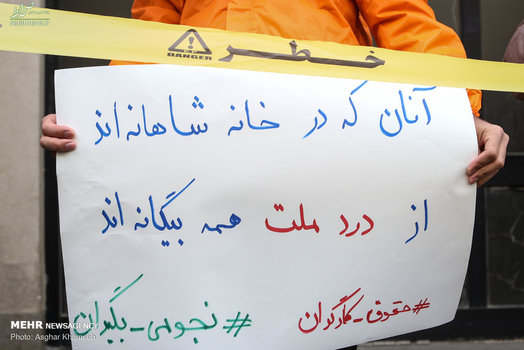 خطر
DANGER
آنان که در خانه شاهانه‌اند
از درد ملت همه بیگانه‌اند
#حقوق_کارگران
#نجومی_بگیران
MEHR NEWSAGENCY
Photo: Asghar Khamseh